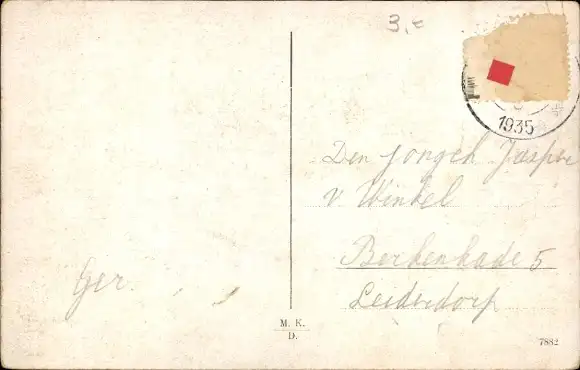 3,-
1935
Den jongeh Jasper
v Winkel
Berkenkade 5
Leiderdorp
Ger.
M. K.
D.
7882